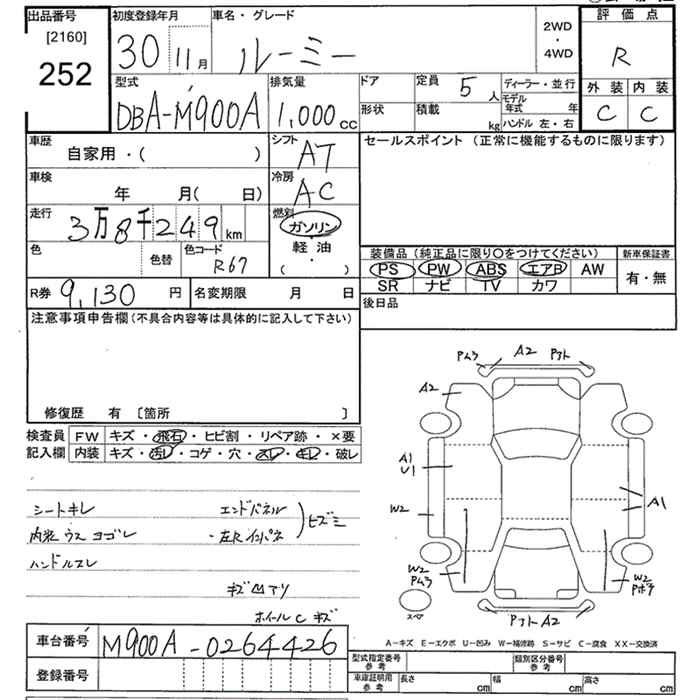 出品番号 初度登録年月 車名・グレード 2WD・4WD 評価点
[2160] 252 30 11月 ルーミー R
型式 排気量 ドア 定員 5人 ディーラー・並行 外装 内装
DBA-M900A 1,000cc 形状 積載 kg モデル年式 年 ハンドル 左・右 C C
車歴 シフト セールスポイント (正常に機能するものに限ります)
自家用・( ) AT
車検 冷房
年 月( 日) AC
走行 燃料
3万8千249km ガソリン
色 色替 色コード 軽油 装備品 (純正品に限り○をつけてください) 新車保証書
R67 (・) PS PW ABS エアB AW 有・無
SR ナビ TV カワ
R券 9,130円 名変期限 月 日 後日品
注意事項申告欄 (不具合内容等は具体的に記入して下さい)
修復歴 有 [箇所 ]
検査員 FW キズ・飛石・ヒビ割・リペア跡・×要
記入欄 内装 キズ・汚レ・コゲ・穴・スレ・キレ・破レ
シートキレ エンドパネル
内装 ウス ヨゴレ ・左Rインパネ ヒズミ
ハンドルスレ
キズ凹アリ
ホイールC キズ
Pムラ A2 Pフト
A2
A1
U1
W2 A1
W2 W2
Pムラ Pボデ
スペア
Pフト A2
A-キズ E-エクボ U-凹み W-補修跡 S-サビ C-腐食 XX-交換済
車台番号 M900A-0264426
登録番号
型式指定番号 参考 類別区分番号 参考
車庫証明用 参考 長さ cm 幅 cm 高さ cm